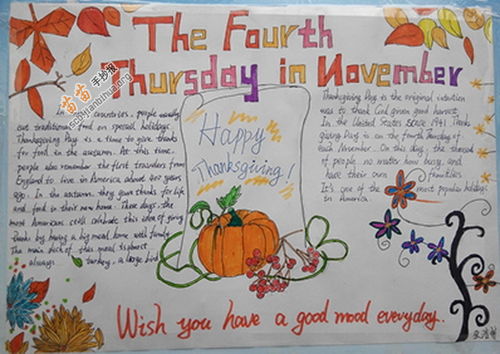 The Fourth
Thursday in November
苗苗手抄报
shouchaobihua.org
In countries, people usually
eat traditional food on special holidays.
Thanksgiving Day is a time to give thanks
for food in the autumn. At this time,
people also remember the first travelers from
England to live in America about 400 years
ago. In the autumn, they gave thanks for life
and food in their new home. These days, the
most Americans still celebrate this idea of giving
thanks by having a big meal home with family.
The main dish of this meal is
always turkey, a large bird
Happy
Thanksgiving!
Thanksgiving Day is the original intention
was to thank God given good harvest.
In the United States since 1941 Thanks
giving Day is on the fourth Thursday of
each November. On this day, the thousand
of people, no matter how busy, and
have their own families.
It's one of the most popular holidays
in America.
Wish you have a good mood everyday..